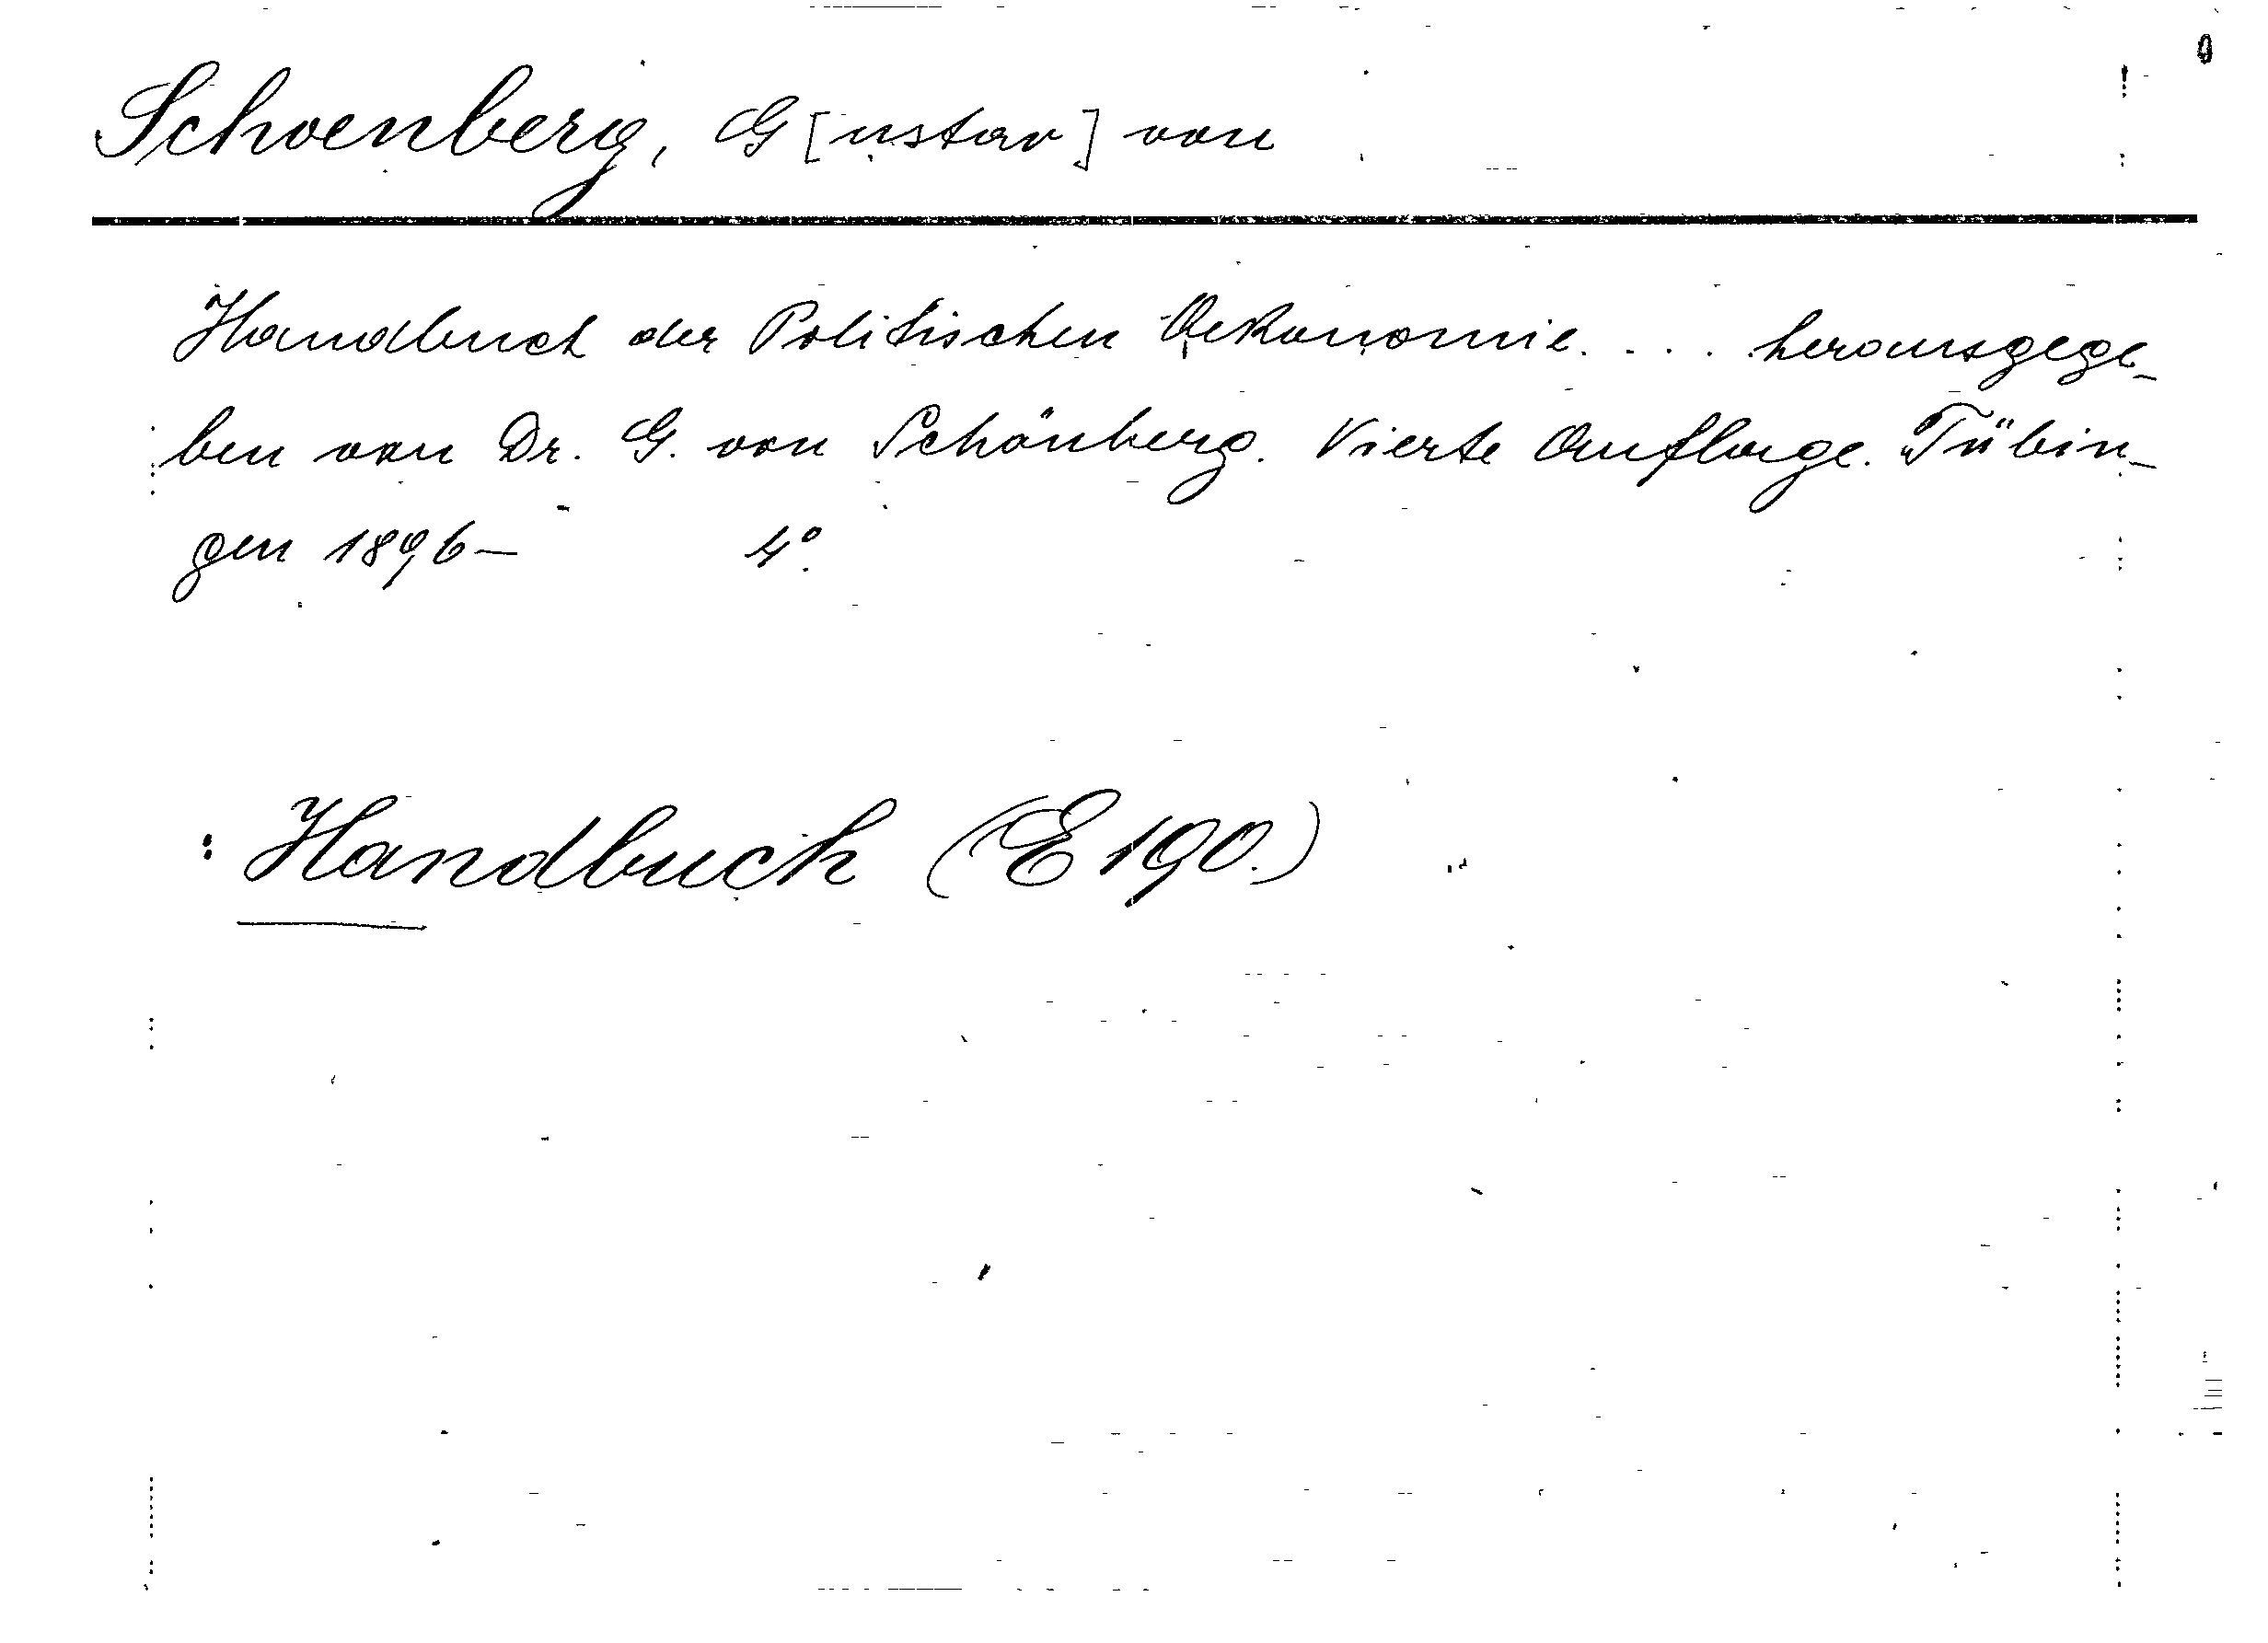 Schoenberg, G [ustav] von
Handbuch der Politischen Oekonomie. . . . herausgege-
ben von Dr. G. von Schönberg. Vierte Auflage. Tübin-
gen 1896- 4°.
: Handbuch (E 190.)